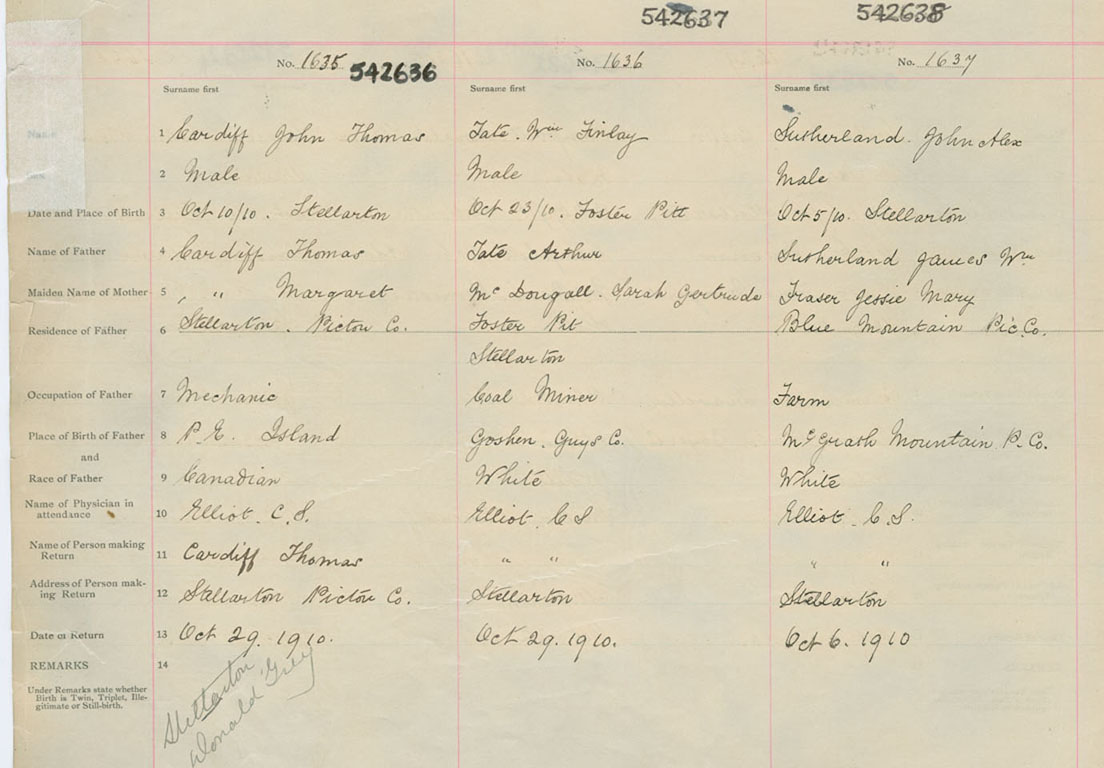 542637 542638
No. 1635 542636 No. 1636 No. 1637
Surname first Surname first Surname first
1 Cardiff John Thomas Tate Wm Finlay Sutherland John Alex
2 Male Male Male
Date and Place of Birth 3 Oct 10/10. Stellarton Oct 23/10. Foster Pitt Oct 5/10. Stellarton
Name of Father 4 Cardiff Thomas Tate Arthur Sutherland James Wm
Maiden Name of Mother 5 " " Margaret Mc Dougall. Sarah Gertrude Fraser Jessie Mary
Residence of Father 6 Stellarton. Pictou Co. Foster Pit Blue Mountain Pic. Co.
Stellarton
Occupation of Father 7 Mechanic Coal Miner Farm
Place of Birth of Father 8 P.E. Island Goshen. Guys Co. McGrath Mountain P. Co.
and
Race of Father 9 Canadian White White
Name of Physician in
attendance 10 Elliot. C.S. Elliot. C S Elliot. C.S.
Name of Person making
Return 11 Cardiff Thomas " " " "
Address of Person mak-
ing Return 12 Stellarton Pictou Co. Stellarton Stellarton
Date of Return 13 Oct 29. 1910. Oct 29. 1910. Oct 6. 1910
REMARKS 14
Under Remarks state whether
Birth is Twin, Triplet, Ille-
gitimate or Still-birth.
Stellarton
Donald Grey